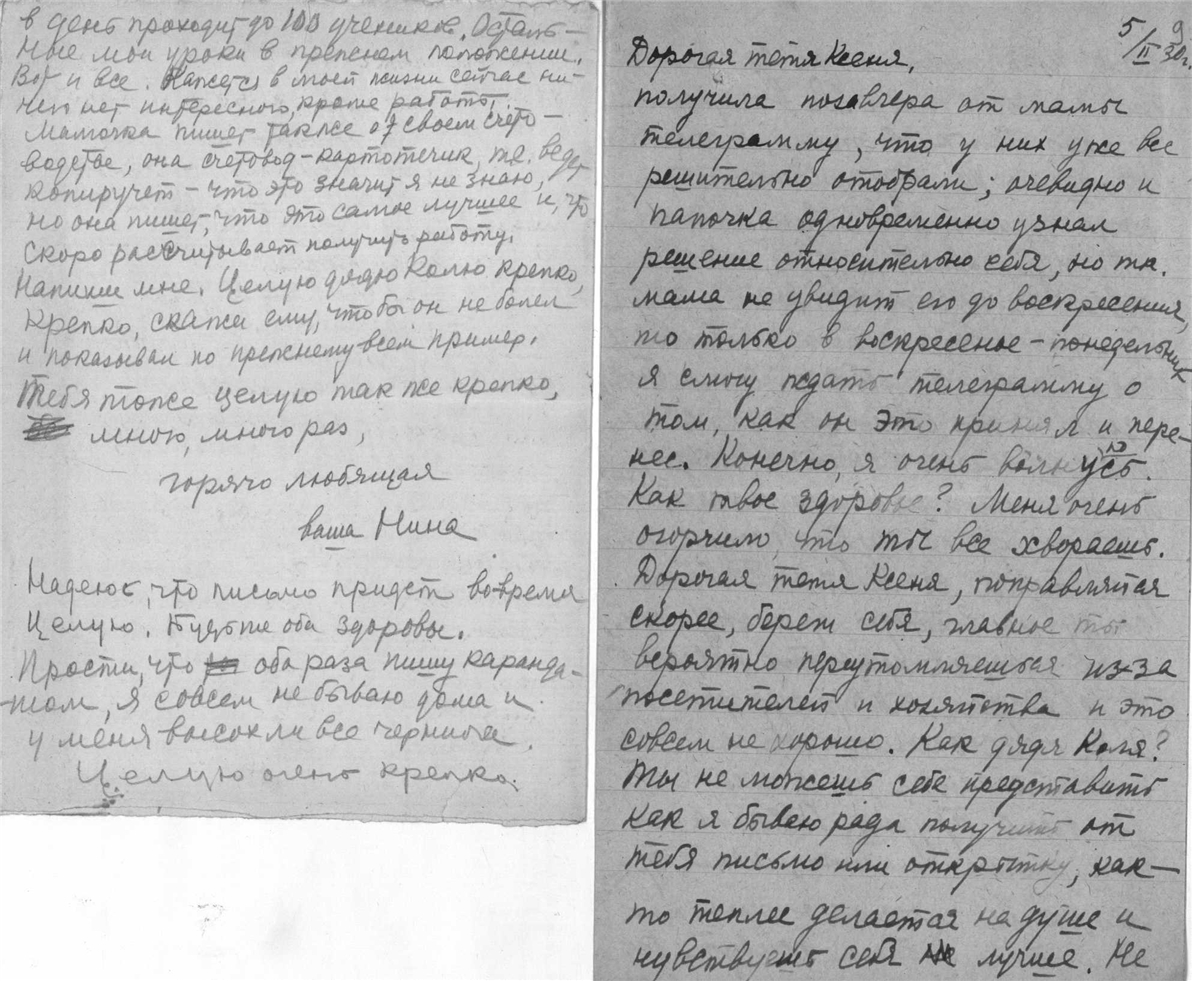 в день проходит до 100 учеников. Осталь-
ные мои уроки в прежнем положении.
Вот и все. Кажется в моей жизни сейчас ни-
чего нет интересного, кроме работы.
Мамочка пишет также о своем счето-
водстве, она счетовод-картотечик, т.е. ведет
копиручет - что это значит я не знаю,
но она пишет, что это самое лучшее и, что
скоро рассчитывает получить работу.
Напиши мне. Целую дядю Колю крепко,
крепко, скажи ему, чтобы он не болел
и показывал по прежнему всем пример.
Тебя тоже целую так же крепко,
много, много раз,
горячо любящая
ваша Нина
Надеюсь, что письмо придет во-время
Целую. Будьте оба здоровы.
Прости, что оба раза пишу каранда-
шом, я совсем не бываю дома и
у меня высохли все чернила.
Целую очень крепко.
5/II 30г.
Дорогая тетя Ксеня,
получила позавчера от мамы
телеграмму, что у них уже все
решительно отобрали; очевидно и
папочка одновременно узнал
решение относительно себя, но т.к.
мама не увидит его до воскресения,
то только в воскресенье - понедельник
я смогу ждать телеграмму о
том, как он это принял и пере-
нес. Конечно, я очень волнуюсь.
Как твое здоровье? Меня очень
огорчило, что ты все хвораешь.
Дорогая тетя Ксеня, поправляйся
скорее, береги себя, главное ты
вероятно переутомляешься из-за
посетителей и хозяйства и это
совсем не хорошо. Как дядя Коля?
Ты не можешь себе представить
как я бываю рада получить от
тебя письмо или открытку, как-
то теплее делается на душе и
чувствуешь себя лучше. Не